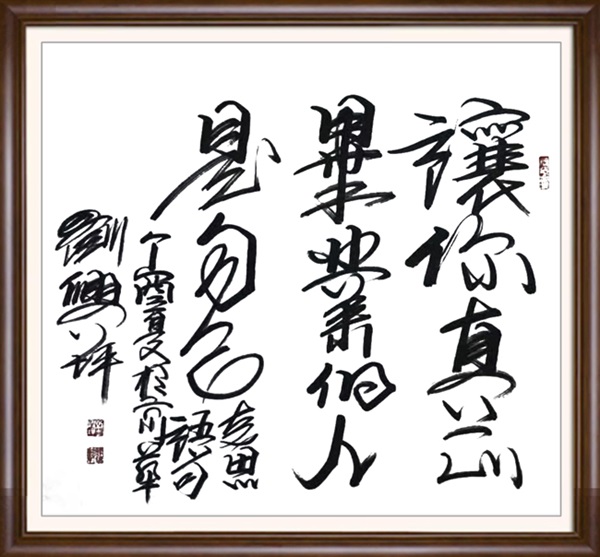 讓你真正
畢業的人
是自己
思語句
丁酉夏於京華
劉興